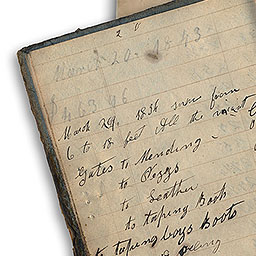 20
March 20. 1843
$463.46
March 29, 1836 snow from
6 to 18 feet All the
Gates to Mending
to Peggs
to Leather
to taping Boots
to taping boys Boots